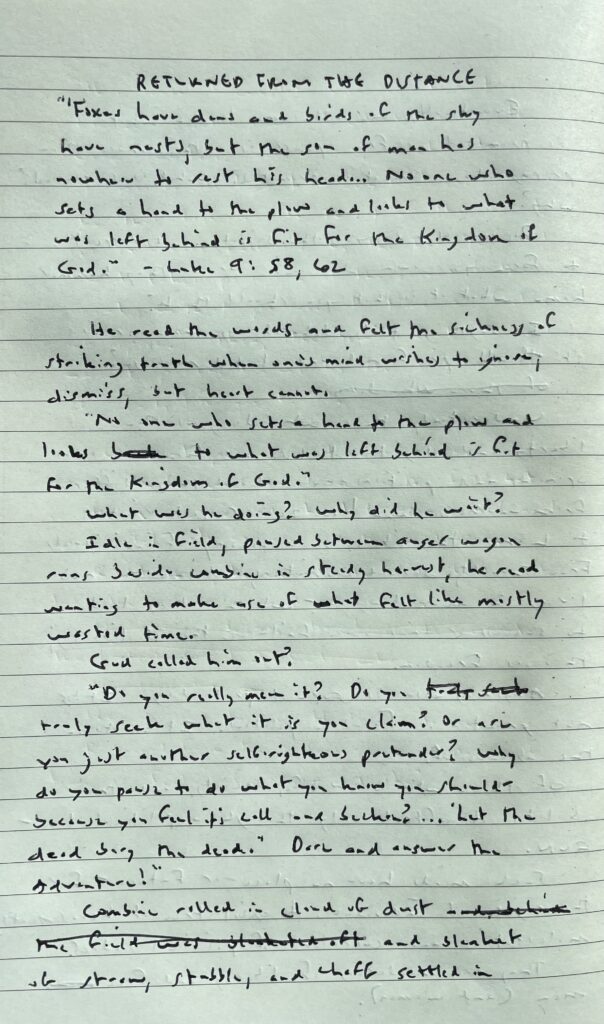 RETURNED FROM THE DISTANCE
"'Foxes have dens and birds of the sky
have nests, but the son of man has
nowhere to rest his head... No one who
sets a hand to the plow and looks to what
was left behind is fit for the Kingdom of
God." - Luke 9: 58, 62
He read the words and felt the sickness of
striking truth when one's mind wishes to ignore,
dismiss, but heart cannot.
"No one who sets a hand to the plow and
looks to what was left behind is fit
for the Kingdom of God."
What was he doing? Why did he wait?
Idle in field, paused between auger wagon
runs beside combine in steady harvest, he read
wanting to make use of what felt like mostly
wasted time.
God called him out?
"Do you really mean it? Do you
truly seek what it is you claim? Or are
you just another self-righteous pretender? Why
do you pause to do what you know you should-
because you feel its call and beckon?... 'Let the
dead bury the dead.' Dare and answer the
Adventure!"
Combine rolled in cloud of dust
and blanket
of straw, stubble, and chaff settled in